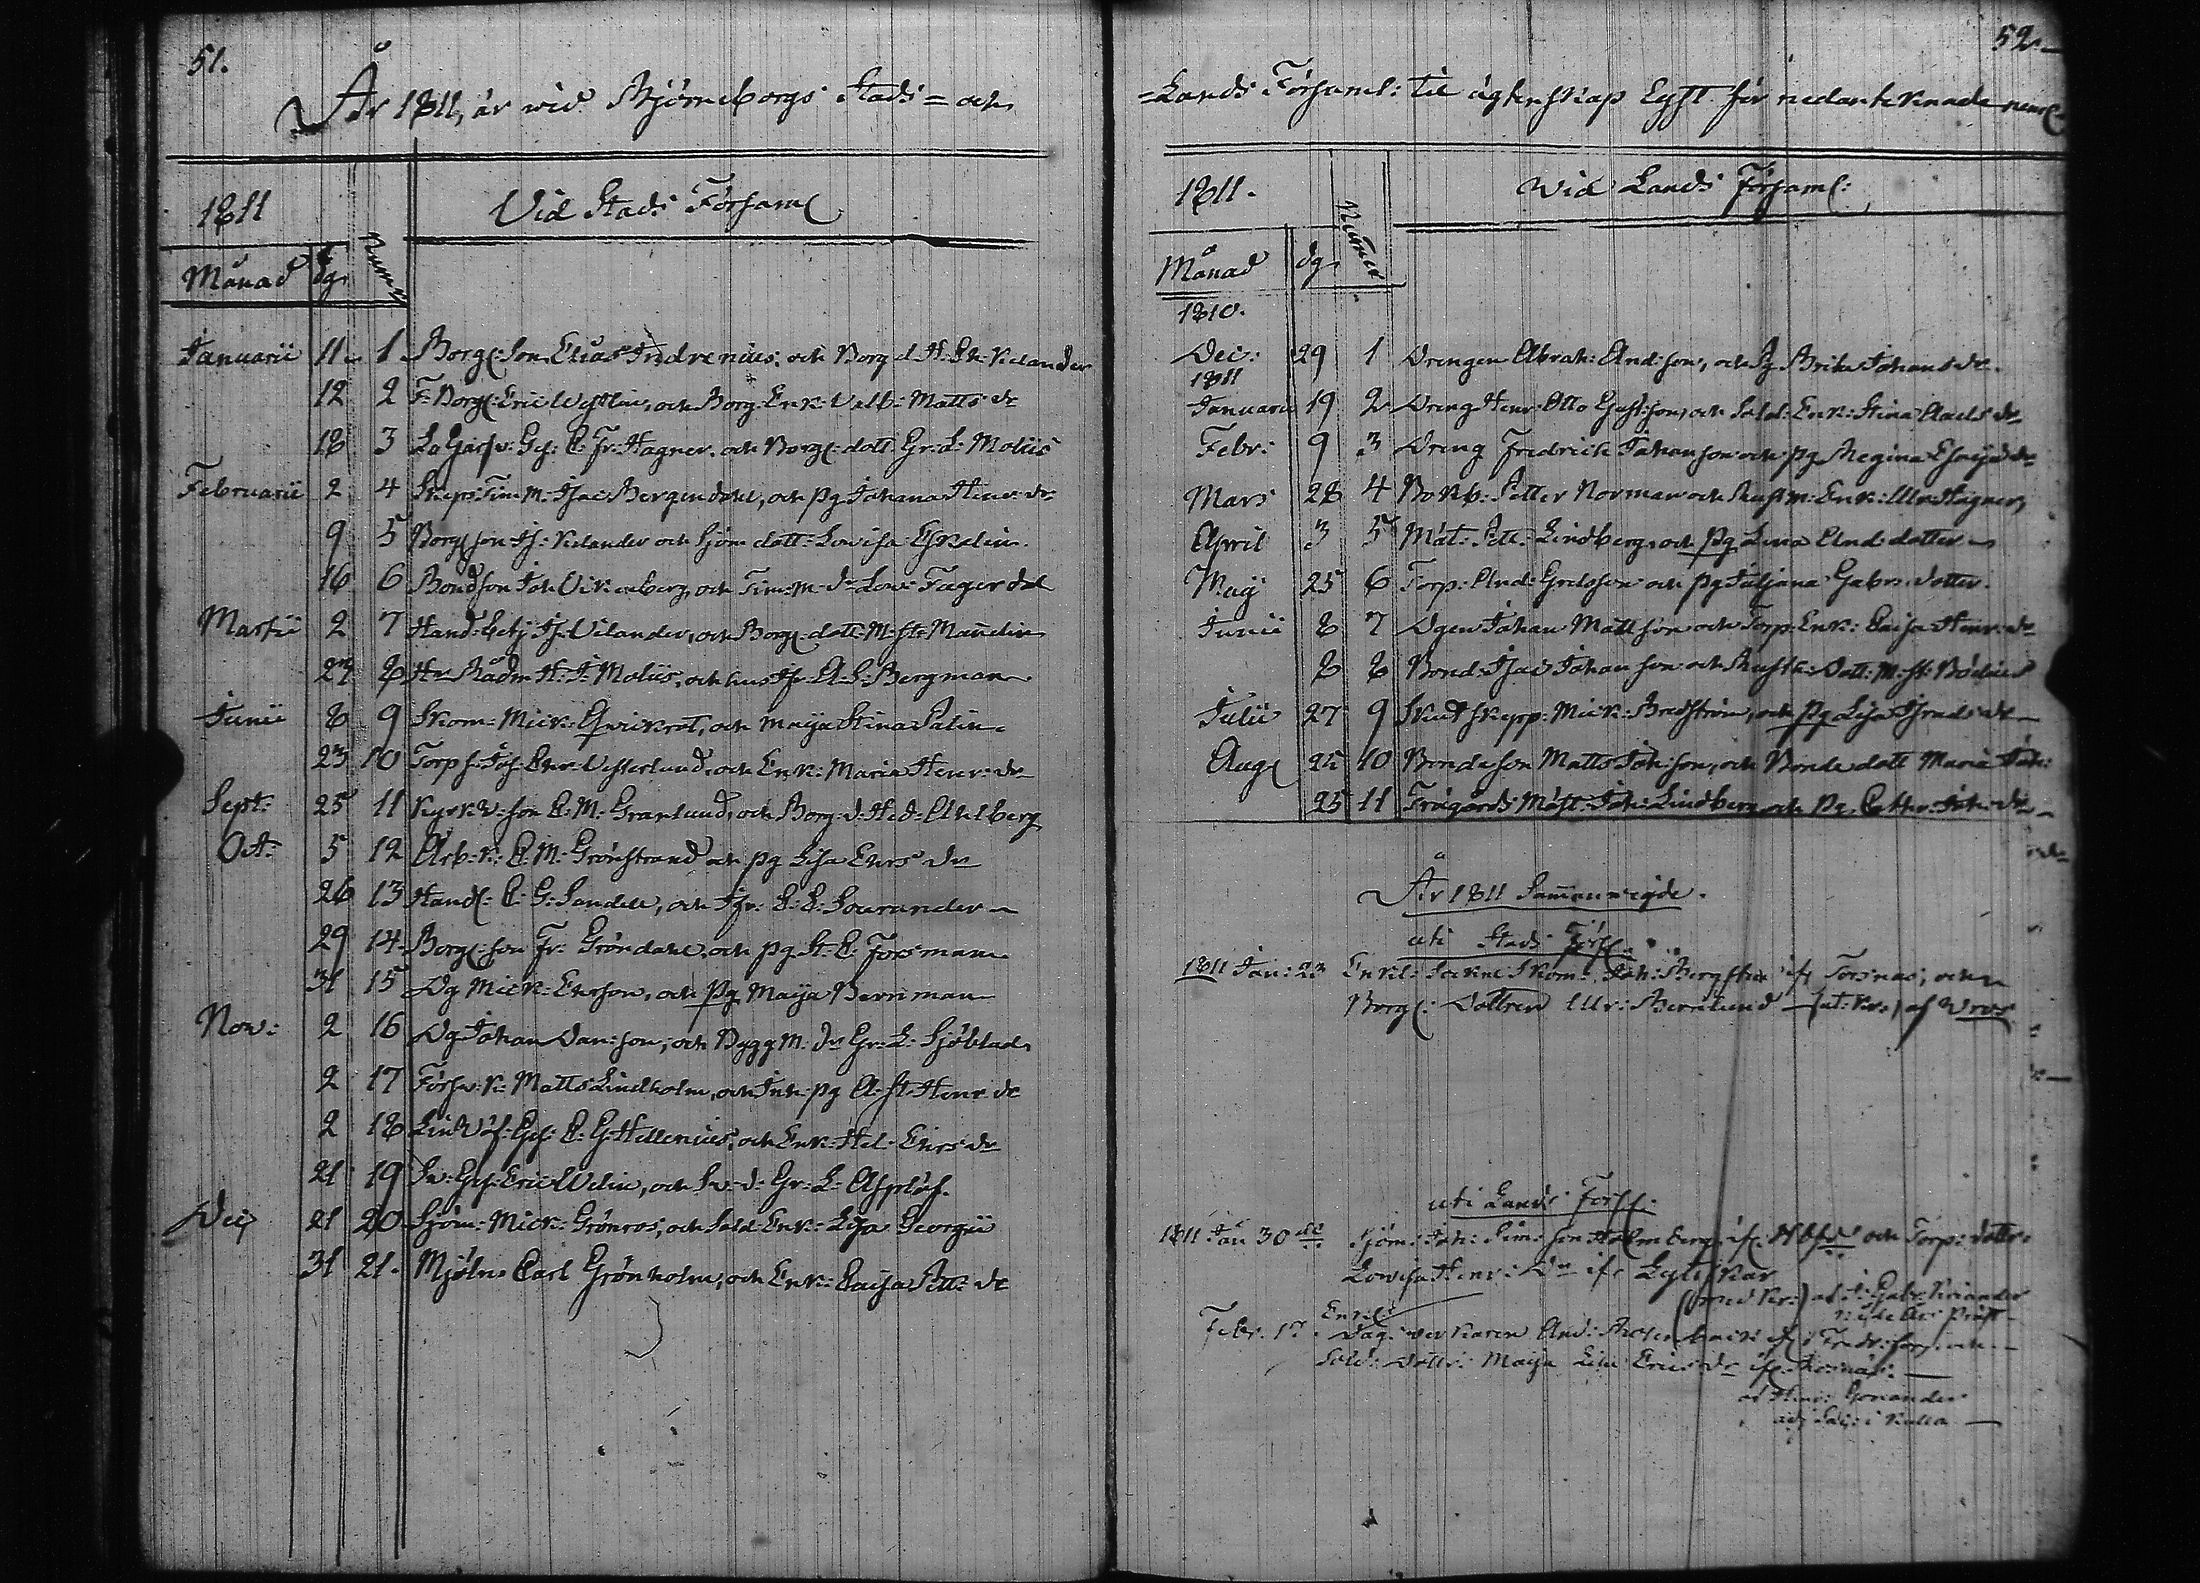 51.
År 1811, är wid Björneborgs Stads= och
1811
Vid Stads Församl
Månad dg. Numer
Januarii 11 1 Borgl: Son Elias Indrenius: och Borg d H: Ch: Kelander
12 2 F: Borgl: Eric Wystlin, och Borg: Enk: Valb: Matts dr
18 3 La Garfv: Ges: C: Fr: Hagner. och Borgl: dott Gr: L: Moliis
Februarii 2 4 Skeps Tim:m: Isac Bergendahl, och pg Johana Henr: dr
9 5 Borgl son Is: Kelander och Sjöm dott: Lovisa Eskelin
16 6 Bond son Joh Vikenberg, och Tim:m: dr Lov: Fagerdal
Martii 2 7 Hand: Betj Is: Vilander, och Borgl: dott: M: St: Maunelin
27 8 Hr Rådm H: J: Moliis, och hust Jfr A: S: Bergman
Junii 8 9 Skom: Mick: Qvickrot, och Maija Stina Palin
23 10 Torp s: Joh: Chr: Vesterlund, och Enk: Maria Henr: dr
Sept: 25 11 Kyrk v: son C: M: Granlund, och Borg: d: Hed: Ahlberg
Oct: 5 12 Arb: k: C: M: Grönstrand och pg Lisa Ericsdr
26 13 Handl: C: G: Sandell, och Jfr: C: E: Sourander
29 14 Borgl: son Fr: Gröndahl, och pg St: C: Forsman
31 15 Dg Mick: Ersson, och pg Maija Berriman
Nov: 2 16 Dg Johan Dan: son, och Bygg M: dr Gr: L: Sjöblad
2 17 Försv: k: Matts Lindholm, och Inh: pg A: St: Henr dr
2 18 Lin Väf: Ges: C: G: Hellenius, och Enk: Hel: Ersdr
21 19 Sv: Ges: Eric Welin, och Sv: d: Gr: L: Asplöf.
Decz 21 20 Sjöm: Mick: Grönros, och Sold: Enk: Lisa Georgii
31 21. Mjöln: Carl Grönholm, och Enk: Caisa Pett: dr
52.
=Lands Församl: til ägtenskap lyst för nedanteknade neml
1811.
Wid Lands Församl:
Månad dg Numer
1810.
Dec: 29 1 Drengen Abrah: And: son, och Pg Brita Johansdr.
1811
Januarii 19 2 Dreng Henr: Otto Gust: son, och Sold: Enk: Stina Carlsdr
Febr: 9 3 Dreng Fredrich Johanson och pg Regina Esaijædr
Mars 28 4 Petter Norman och Enk: Ulr: Hagner
April 3 5 Mat: Pett: Lindberg, och pg Lena And: dotter
Maij 25 6 Torp: And: Grelsson och pg Juljana Gabr: dotter
Junii 8 7 Dgen Johan Mattsson och Torp: Enk: Caisa Henr: dr
8 8 Bond: Isac Johanson och Rusth: Dott: M: St: Bödker
Julii 27 9 Skutskepp: Mick: Bredström, och pg Lisa Isracsdr
Aug 25 10 Bondeson Matts Joh: son, och Bonde dott Maria Joh:
25 11 Trägårds Mäst: Joh: Lindberg och pg Cathr: Joh: dr
År 1811 Sammanvigde.
uti Stads Försl:
1811 Jan: 23 Enkl: Sockne Skom: Joh: Bergsten if: Torsnäs, och
Borgl: Dottren Ulr: Berrlund af
uti Lands Försl:
1811 Jan 30de Sjöm: Joh: Sim: son Holmberg, if: och Torp: dottr:
Lovisa Henr: Dr ifr Lyttskär
af J: Gabr: Kiviander
Febr. 17 Enkl: Dag: verkaren And: if Fredr: fors: och
Sold: Dottr: Maija Lisa Ericsdr if: Kornäs:
af Henr: Gonander